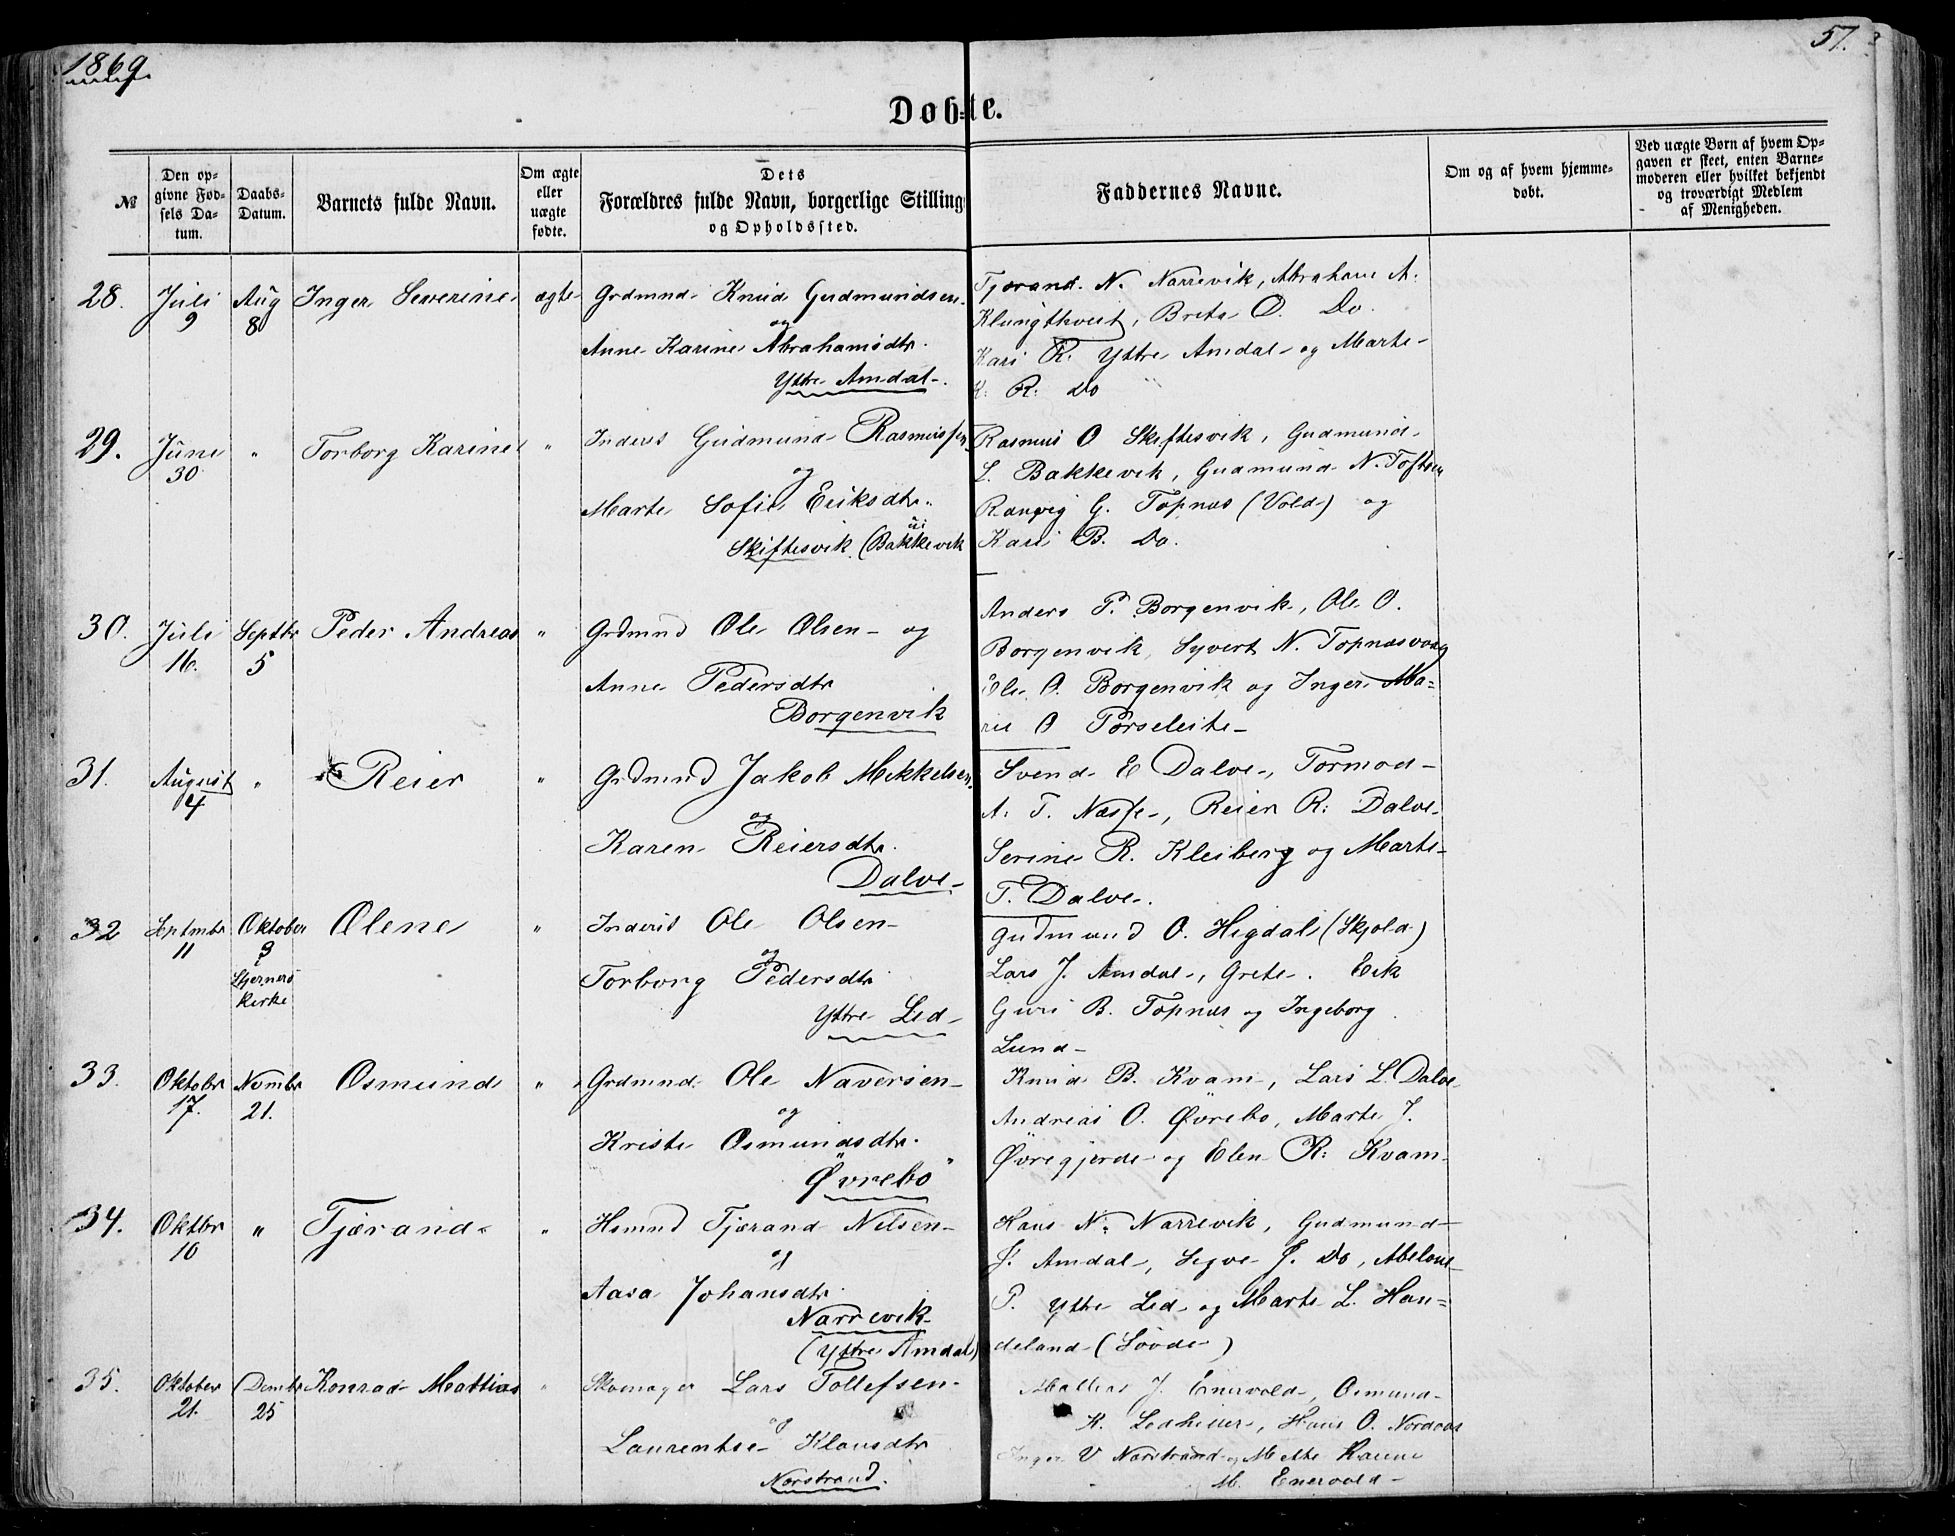 1869
57.
Døbte.
№
Den opgivne Fødsels Datum.
Daabs-Datum.
Barnets fulde Navn.
Om ægte eller uægte fødte.
Dets Forældres fulde Navn, borgerlige Stilling og Opholdssted.
Faddernes Navne.
Om og af hvem hjemmedøbt.
Ved uægte Børn af hvem Opgaven er skeet, enten Barnemoderen eller hvilket bekjendt og troværdigt Medlem af Menigheden.
28. Juli 9 Aug 8 Inger Severine ægte
Grdmnd Knud Gudmundsen
og
Anne Karine Abrahamsdtr.
Yttre Amdal
Tjærand N. Narrevik, Abraham A.
Klungtveit, Breta O. Do.
Kari R. Yttre Amdal og Marte
K. R. Do
29. Juni 30 " Torborg Karine "
Inderst Gudmund Rasmussen
og
Marte Sofie Eriksdtr.
Skiftesvik (Bakkevik
Rasmus O Skiftesvik, Gudmund
L. Bakkevik, Gudmund N. Toften
Rangvig G. Topnæs (Vold) og
Kari B. Do.
30. Juli 16. Septbr 5 Peder Andreas "
Grdmnd Ole Olsen og
Anne Pedersdtr
Borgenvik
Anders P. Borgenvik, Ole O.
Borgenvik, Syvert N. Topnæsvaag
Ele O. Borgenvik og Inger Ma=
rie O Torseleite
31. August 4 " Reier "
Grdmnd Jakob Mikkelsen
og
Karen Reiersdtr.
Dalve
Svend E Dalve, Tormod
A. T. Næsse, Reier R: Dalve
Serine R. Kleiberg og Marte
T. Dalve.
32 Septmbr 11 Oktober 3 i Sjernerø Kirke Olene "
Inderst Ole Olsen
og
Torborg Pedersdtr
Yttre Lid
Gudmund O. Higdal (Skjold)
Lars J. Amdal, Grete Eik
Guri B. Topnæs og Ingeborg
Lund
33. Oktobr 17. Novmbr 21. Osmund "
Grdmnd Ole Naversen
og
Kriste Osmundsdtr.
Øvrebø
Knud B. Kvam, Lars L. Dalve
Andreas O. Øvrebø, Marte J.
Øvregjerde og Elen R: Kvam
34. Oktbr 10 " Tjærand "
Hsmnd Tjærand Nilsen
og
Aasa Johansdtr.
Narrevik
(Yttre Amdal)
Hans N. Narrevik, Gudmund
J. Amdal, Segve J. Do, Abelone
P. Yttre Lid og Marte L. Han=
deland (Søvde)
35. Oktober 21. Dcmbr 25 Konrad Mattias "
Skomager Lars Tollefsen
og
Laurentse Klausdtr
Norstrand.
J. Enervold, Osmund
K. Ledheller, Hans O. Nordaas
Inger V Norstrand og Mette Karine
M. Enervold